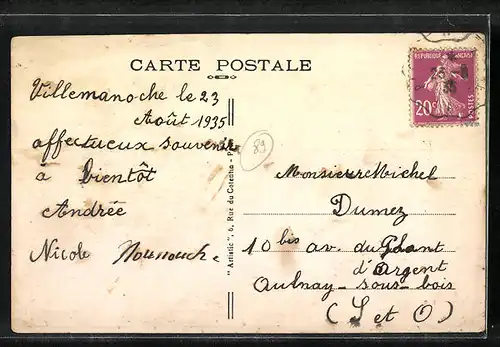 CARTE POSTALE
Villemanoche le 23
Août 1935
affectueux souvenir
à bientôt
Andrée
Nicole Nounouche
"Artistic", 6, Rue du Cotentin - 
89
REPUBLIQUE FRANÇAISE
20c
POSTES
Monsieur Michel
Dumez
10 bis av. du
d'Argent
Aulnay-sous-bois
(S et O)